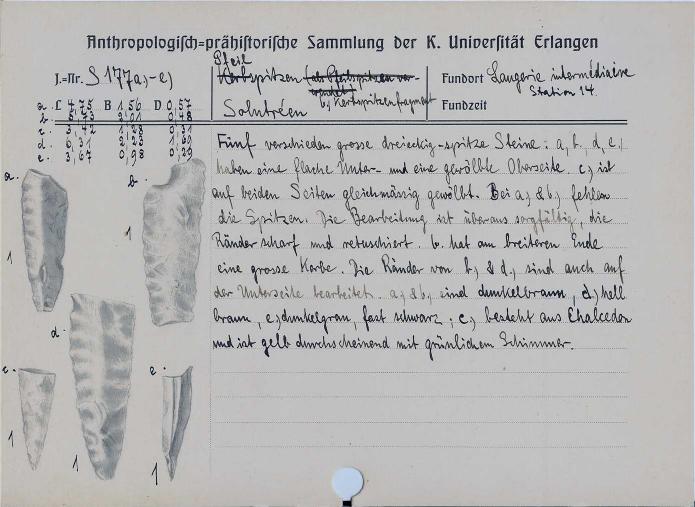 Anthropologisch-prähistorische Sammlung der K. Universität Erlangen
J.-Nr. S 177a,-e)
Pfeil
Kerbspitzen (als Pfeilspitzen verwendet)
b, Kerbspitzenfragment
Solutréen
Fundort Laugerie intermédiaire
Station 14.
Fundzeit
a. L 4,75 B 1,56 D 0,57
b. 5,73 2,01 0,48
c. 3,42 1,28
d. 6,31 2,02
e. 3,67 0,98 0,29
Fünf verschieden grosse dreieckig-spitze Steine: a, b, d, e,)
haben eine flache Unter- und eine gewölbte Oberseite. c,) ist
auf beiden Seiten gleichmässig gewölbt. Bei a,) & b,) fehlen
die Spitzen. Die Bearbeitung ist überaus sorgfältig, die
Ränder scharf und retuschiert. b. hat am breiteren Ende
eine grosse Kerbe. Die Ränder von b,) & d,) sind auch auf
der Unterseite bearbeitet. a,) & b,) sind dunkelbraun, d,) hell
braun, e,) dunkelgrau, fast schwarz; c,) besteht aus Chalcedon
und ist gelb durchscheinend mit grünlichem Schimmer.
a.
b.
1
1
d.
c.
e.
1
1
1